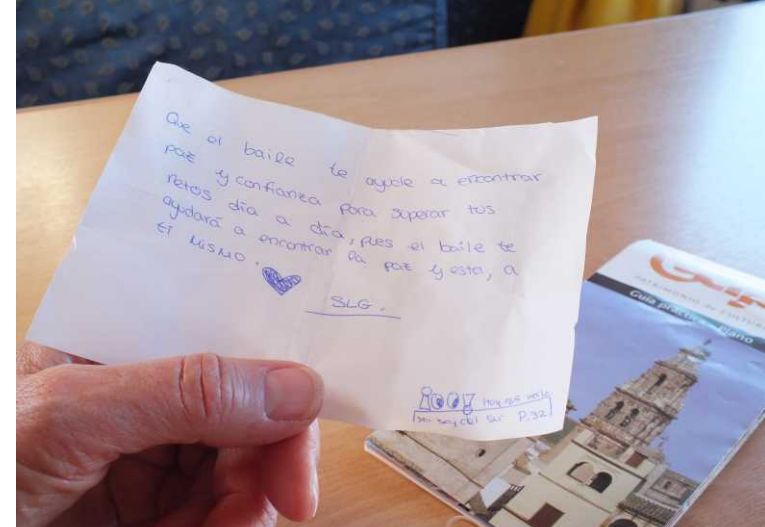 Que el baile te ayude a encontrar
paz y confianza para superar tus
retos día a día, pues el baile te
ayudará a encontrar la paz y esta, a
tí MISMO.
SLG.
hay que verlo
P.32
Écija
PATRIMONIO de CULTURA
Guía práctica - Plano